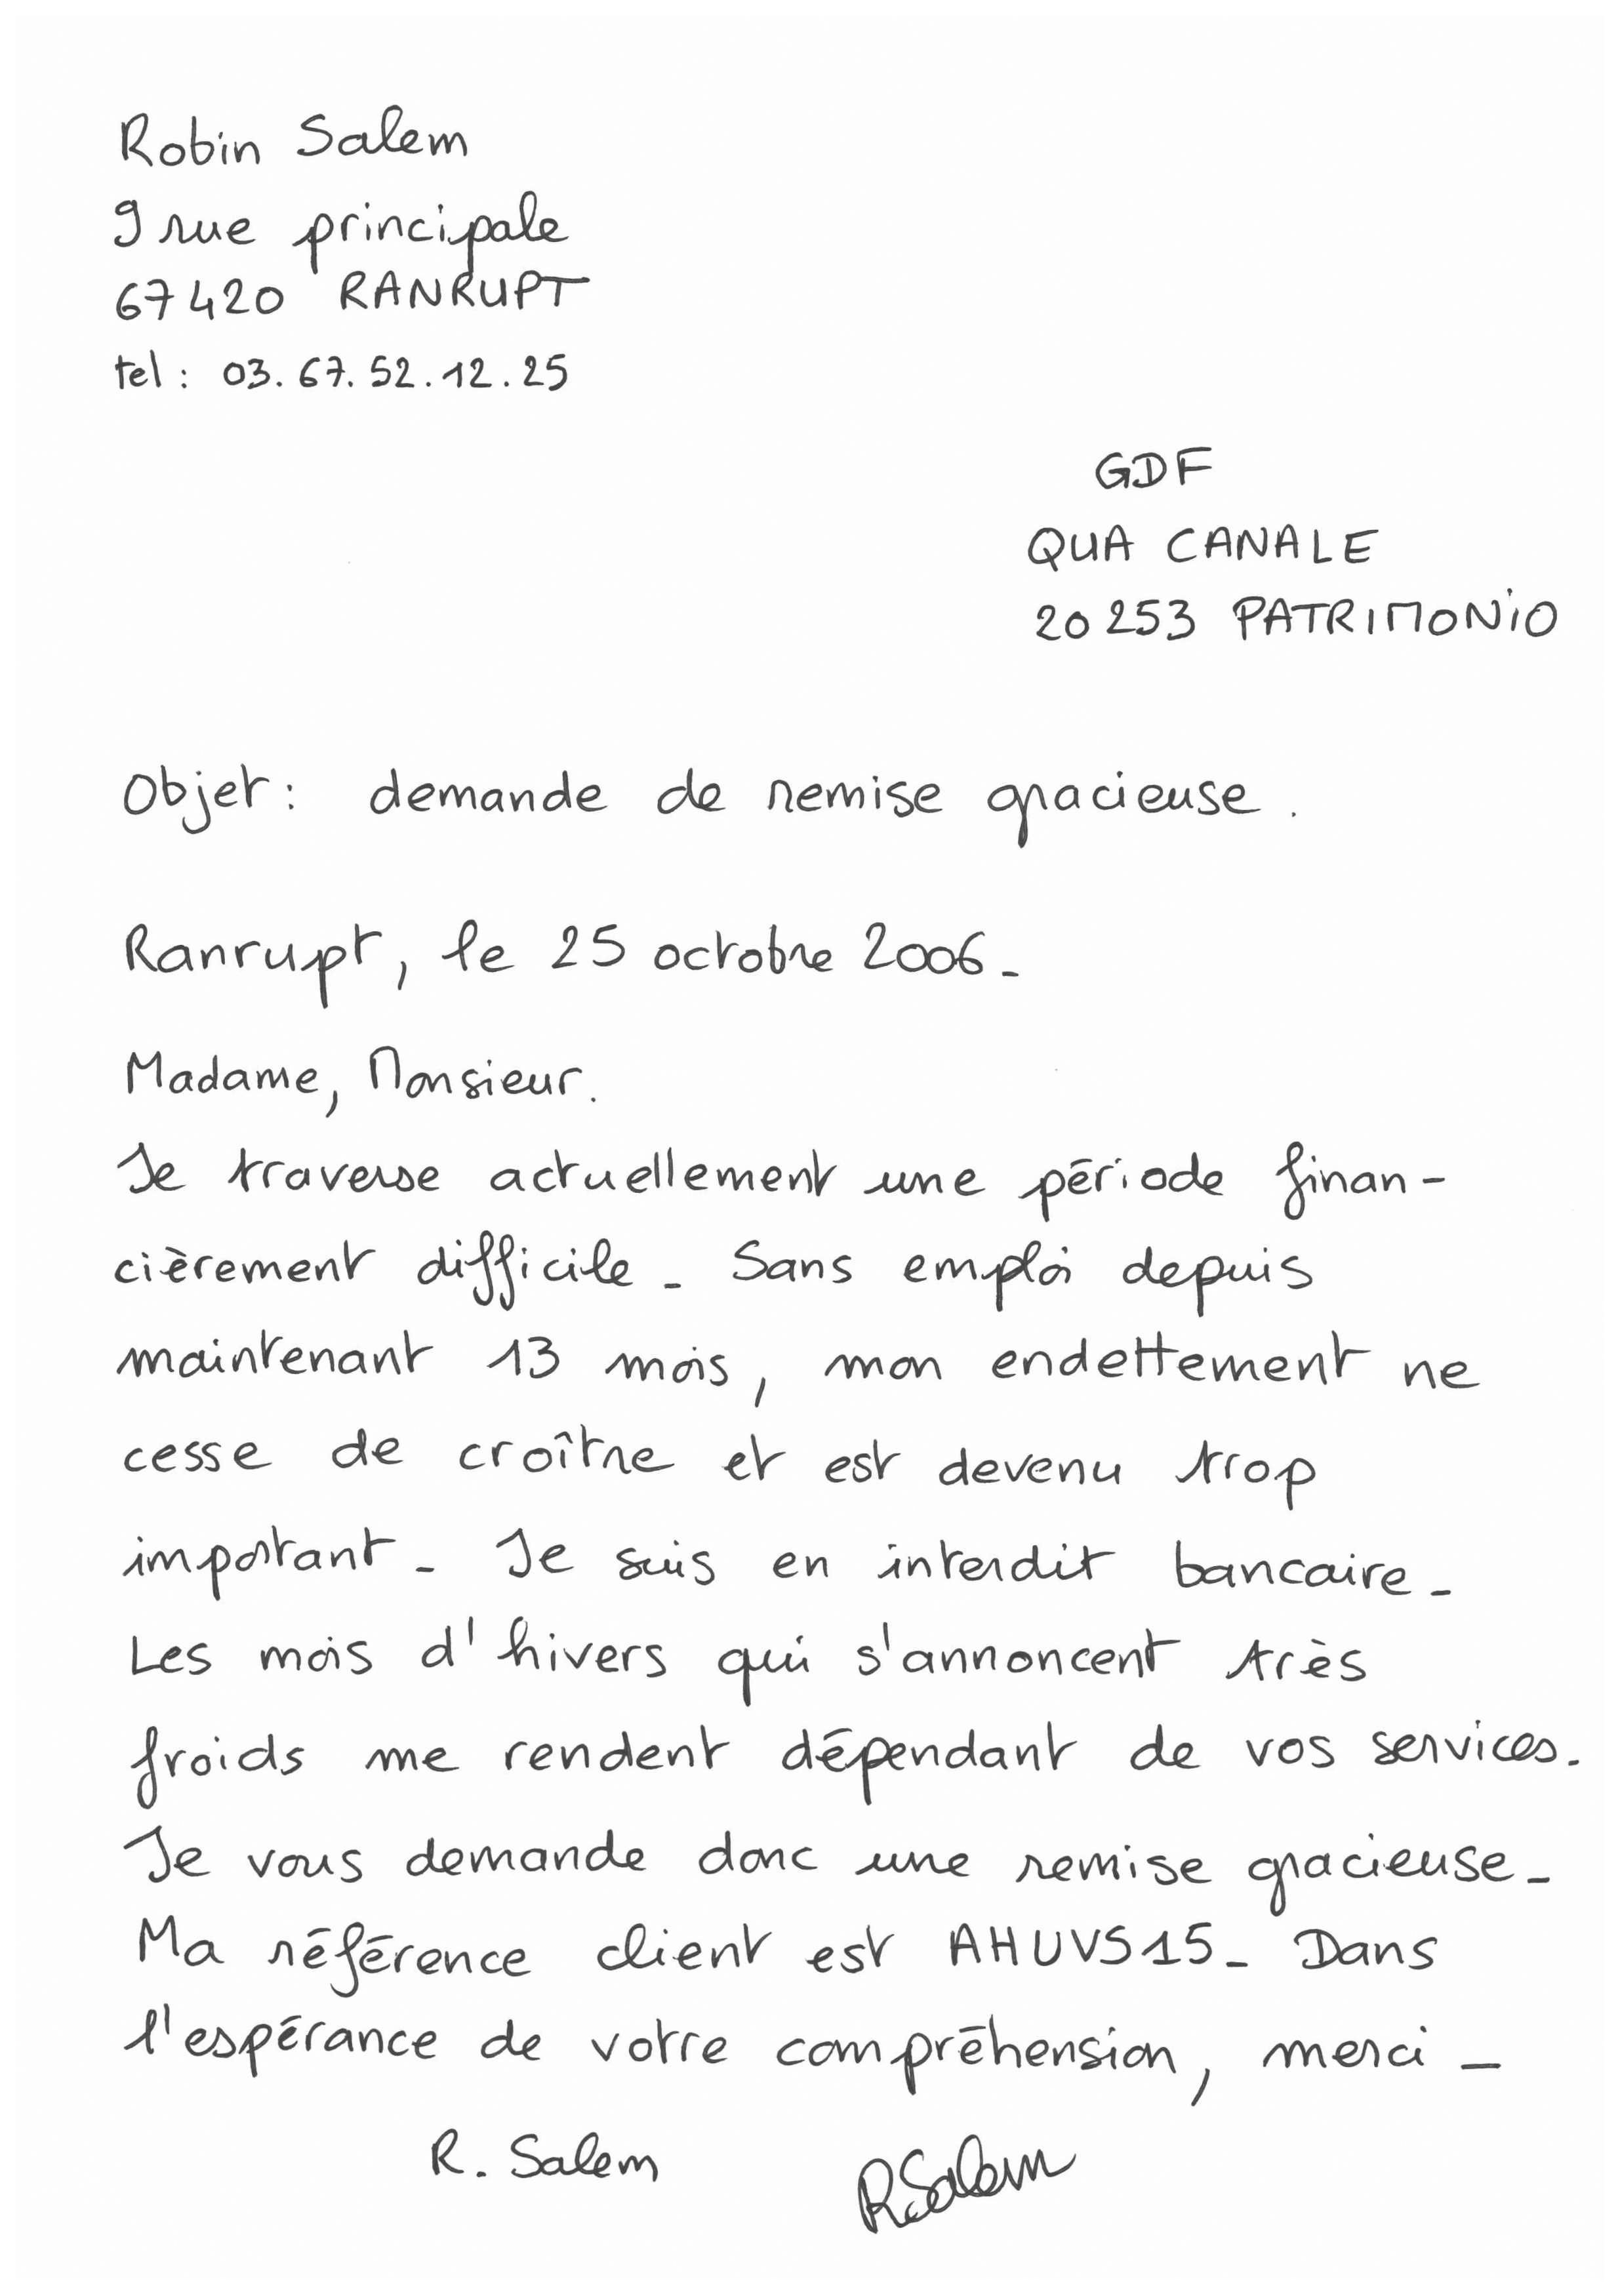 Robin Salem
9 rue principale
67420 RANRUPT
tel : 03.67.52.12.25
GDF
QUA CANALE
20253 PATRIMONIO
Objet : demande de remise gracieuse.
Ranrupt, le 25 octobre 2006.
Madame, Monsieur.
Je traverse actuellement une période finan-
cièrement difficile. Sans emploi depuis
maintenant 13 mois, mon endettement ne
cesse de croître et est devenu trop
important. Je suis en interdit bancaire.
Les mois d'hivers qui s'annoncent très
froids me rendent dépendant de vos services.
Je vous demande donc une remise gracieuse.
Ma référence client est AHUVS15. Dans
l'espérance de votre compréhension, merci.
R. Salem
R.Salem